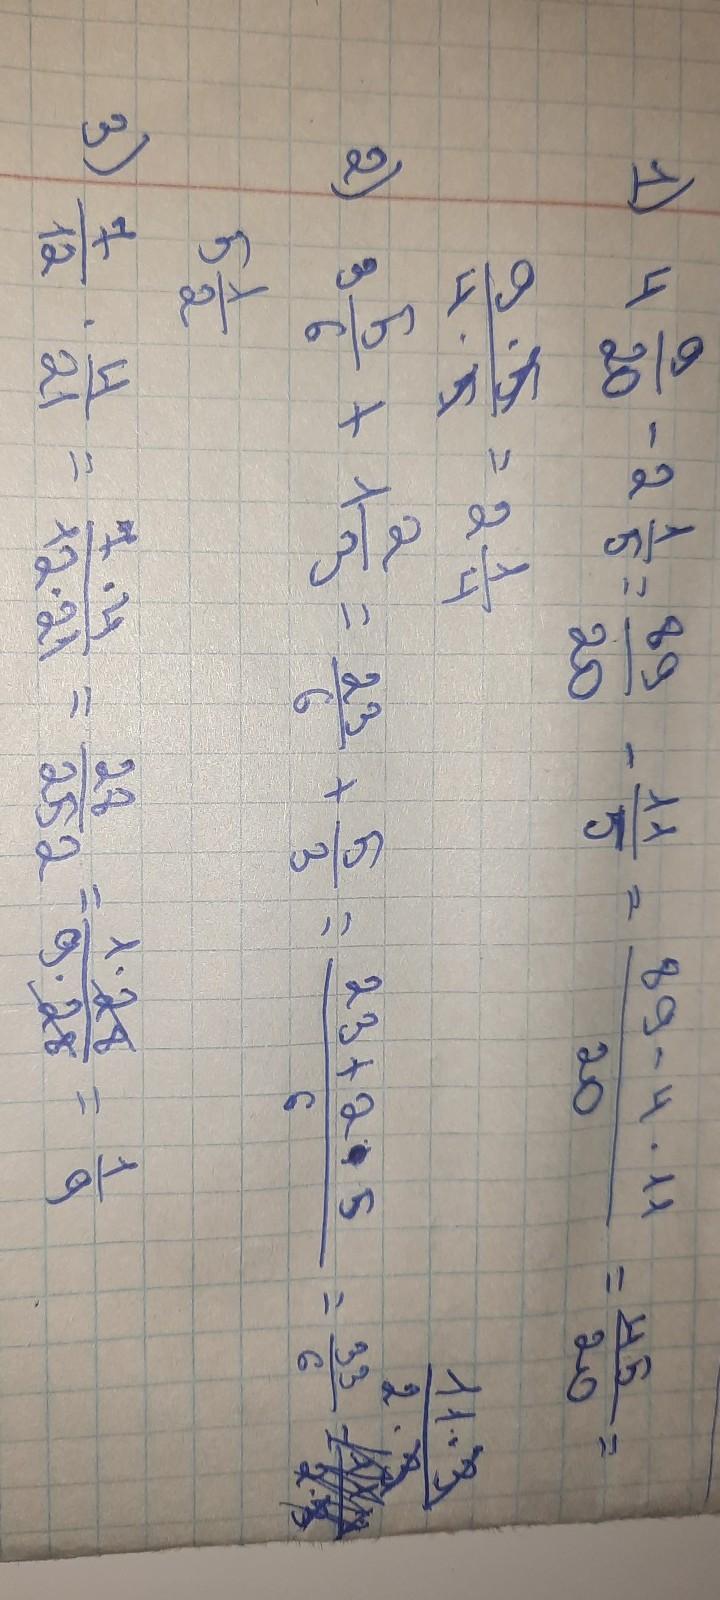 1) 4 9/20 - 2 1/5 = 89/20 - 11/5 = (89 - 4 · 11)/20 = 45/20 =
(9 · 5)/(4 · 5) = 2 1/4
2) 3 5/6 + 1 2/3 = 23/6 + 5/3 = (23 + 2 · 5)/6 = 33/6 (11 · 3)/(2 · 3)
5 1/2
3) 7/12 · 4/21 = (7 · 4)/(12 · 21) = 28/252 = (1 · 28)/(9 · 28) = 1/9